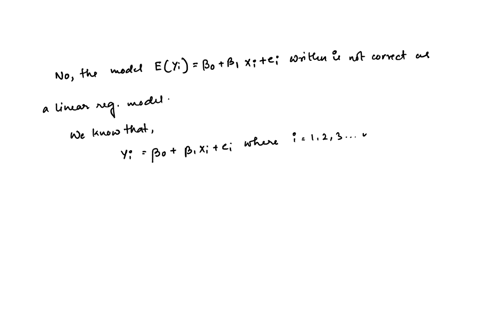 No, the model E(Yi) = β0 + β1 Xi + ei written is not correct as
a linear reg. model.
We know that,
Yi = β0 + β1 Xi + ei where i = 1, 2, 3 ...